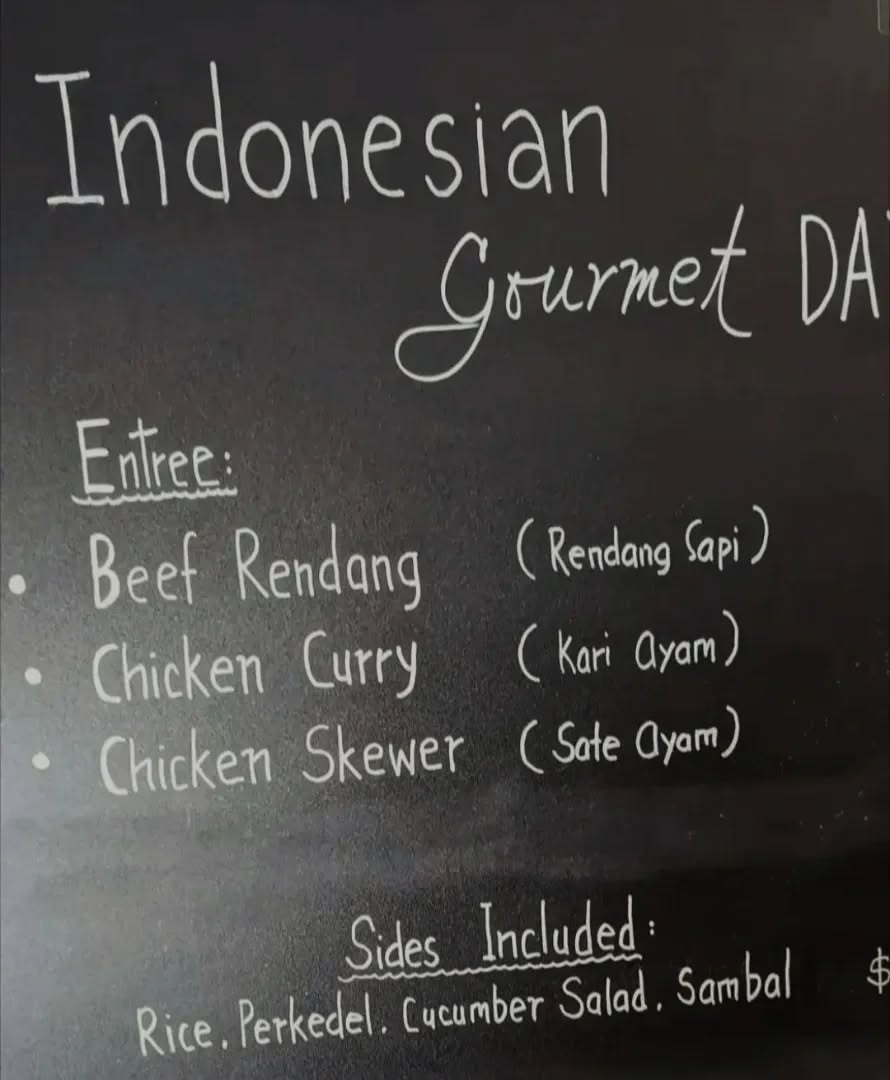 Indonesian
Gourmet DA
Entree:
• Beef Rendang (Rendang Sapi)
• Chicken Curry (Kari Ayam)
• Chicken Skewer (Sate Ayam)
Sides Included:
Rice. Perkedel. Cucumber Salad. Sambal $